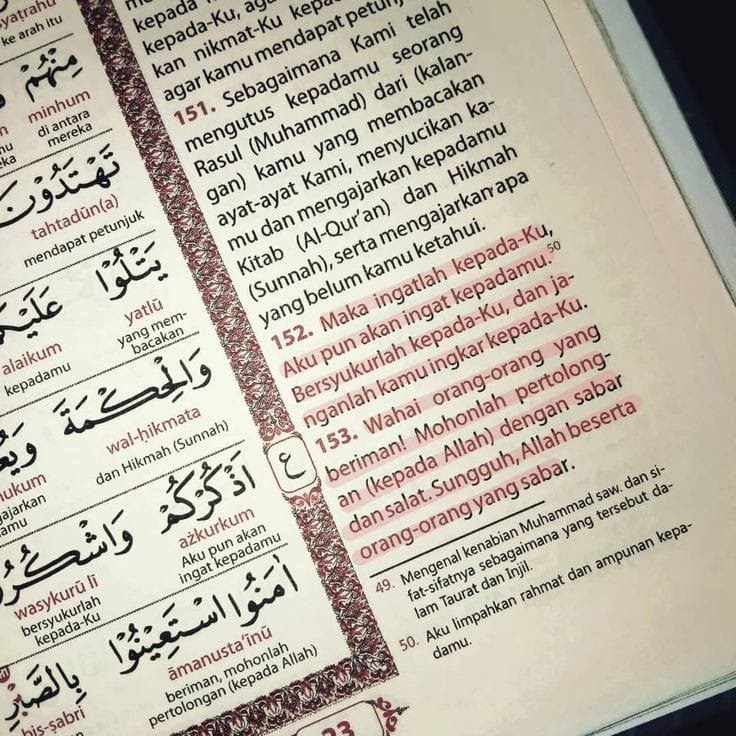 syaṭrahū
ke arah itu
مِنْهُمْ
minhum
di antara
mereka
تَهْتَدُوْنَ
tahtadūn(a)
mendapat petunjuk
يَتْلُوْا
alaikum yatlū
kepadamu yang mem-
bacakan
وَالْحِكْمَةَ
wal-ḥikmata
dan Hikmah (Sunnah)
اَذْكُرْكُمْ
ażkurkum
Aku pun akan
ingat kepadamu
wasykurū lī
bersyukurlah
kepada-Ku
اٰمَنُوا اسْتَعِيْنُوْا
āmanusta'īnū
beriman, mohonlah
pertolongan (kepada Allah)
بِالصَّبْرِ
biṣ-ṣabri
kepada-Ku, aga
kan nikmat-Ku kepad
agar kamu mendapat petunjuk
151. Sebagaimana Kami telah
mengutus kepadamu seorang
Rasul (Muhammad) dari (kalan-
gan) kamu yang membacakan
ayat-ayat Kami, menyucikan ka-
mu dan mengajarkan kepadamu
Kitab (Al-Qur'an) dan Hikmah
(Sunnah), serta mengajarkan apa
yang belum kamu ketahui.
152. Maka ingatlah kepada-Ku,
Aku pun akan ingat kepadamu.50
Bersyukurlah kepada-Ku, dan ja-
nganlah kamu ingkar kepada-Ku.
153. Wahai orang-orang yang
beriman! Mohonlah pertolong-
an (kepada Allah) dengan sabar
dan salat. Sungguh, Allah beserta
orang-orang yang sabar.
ع
49. Mengenal kenabian Muhammad saw. dan si-
fat-sifatnya sebagaimana yang tersebut da-
lam Taurat dan Injil.
50. Aku limpahkan rahmat dan ampunan kepa-
damu.
23